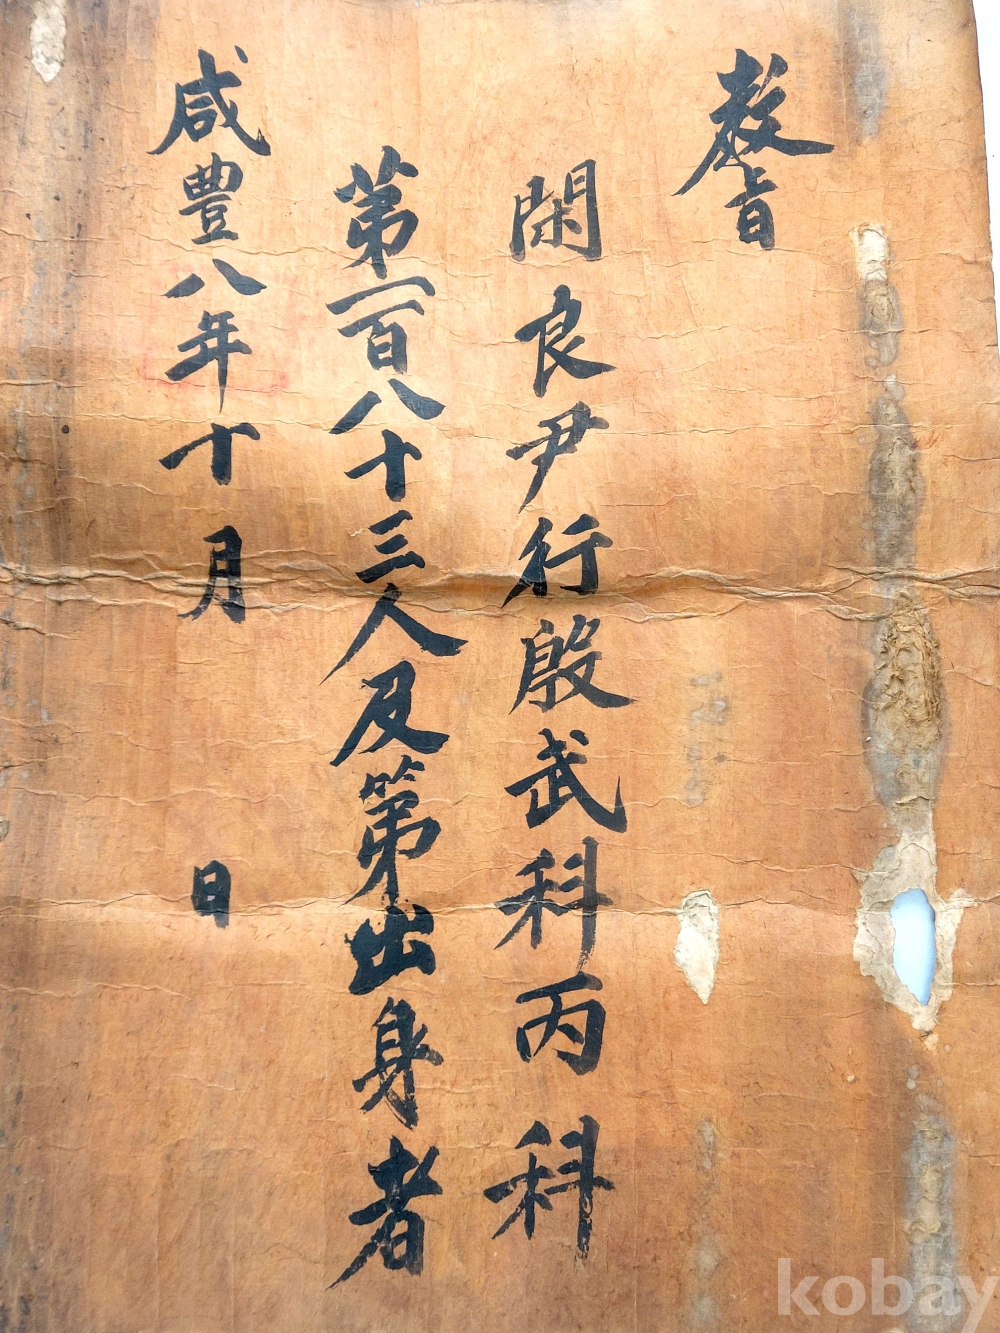 敎旨
閑良尹行殷武科丙科
第一百八十三人及第出身者
咸豊八年十月　日
kobay